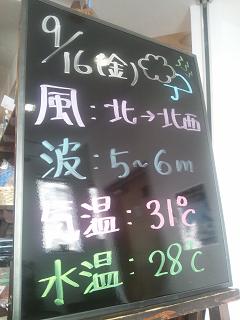 9/16(金)
風:北→北西
波:5~6m
気温:31℃
水温:28℃